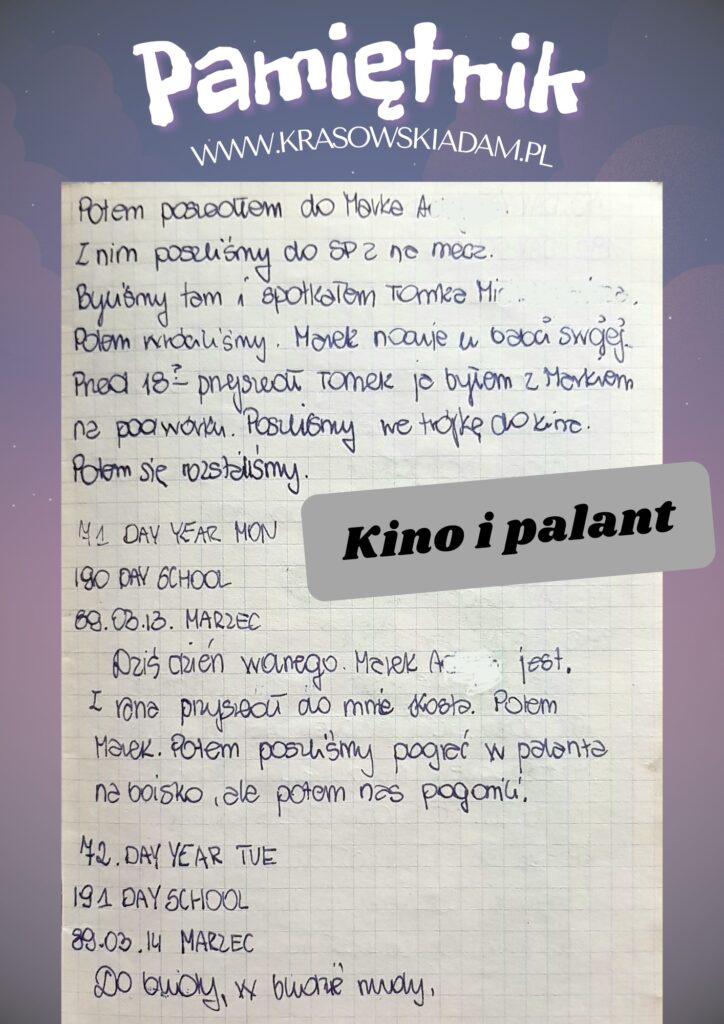 Pamiętnik
WWW.KRASOWSKIADAM.PL
Potem poszedłem do Marka A
I nim poszliśmy do SP 2 na mecz.
Byliśmy tam i spotkałem Tomka Mi
Potem wróciliśmy. Marek nocuje u babci swojej.
Przed 18 przyszedł Tomek ja byłem z Markiem
na podwórku. Poszliśmy we trójkę do kina.
Potem się rozstaliśmy.
Kino i palant
71 DAY YEAR MON
190 DAY SCHOOL
89.03.13. MARZEC
Dziś dzień wanego. Marek A jest.
I rana przyszedł do mnie Kosta. Potem
Marek. Potem poszliśmy pograć w palanta
na boisko, ale potem nas pogonili.
72. DAY YEAR TUE
191 DAY SCHOOL
89.03.14 MARZEC
Do budy, w budzie nudy.